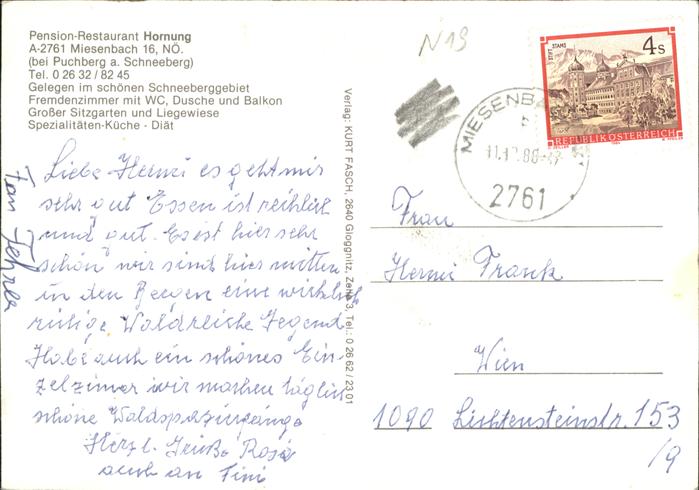 Pension-Restaurant Hornung
A-2761 Miesenbach 16, NÖ.
(bei Puchberg a. Schneeberg)
Tel. 0 26 32 / 82 45
Gelegen im schönen Schneeberggebiet
Fremdenzimmer mit WC, Dusche und Balkon
Großer Sitzgarten und Liegewiese
Spezialitäten-Küche - Diät
Liebe Hermi es geht mir
sehr gut Essen ist reihlich
und gut. Es ist hier sehr
schön wir sind hier mitten
in den Bergen eine wirklich
ruhige Waldreiche Gegend
Habe auch ein schönes Ein-
zelzimer wir machen täglich
schöne Waldspaziergänge
Herzl. Grüße Rosa
auch an Fini
Verlag: KURT FASCH, 2640 Gloggnitz, Zeile 3, Tel.: 0 26 62 / 23 01
N19
STIFT STAMS
4 S
REPUBLIK ÖSTERREICH
MIESENBA
2761
Frau
Hermi Frank
Wien
1090 Lichtensteinstr. 153
/9